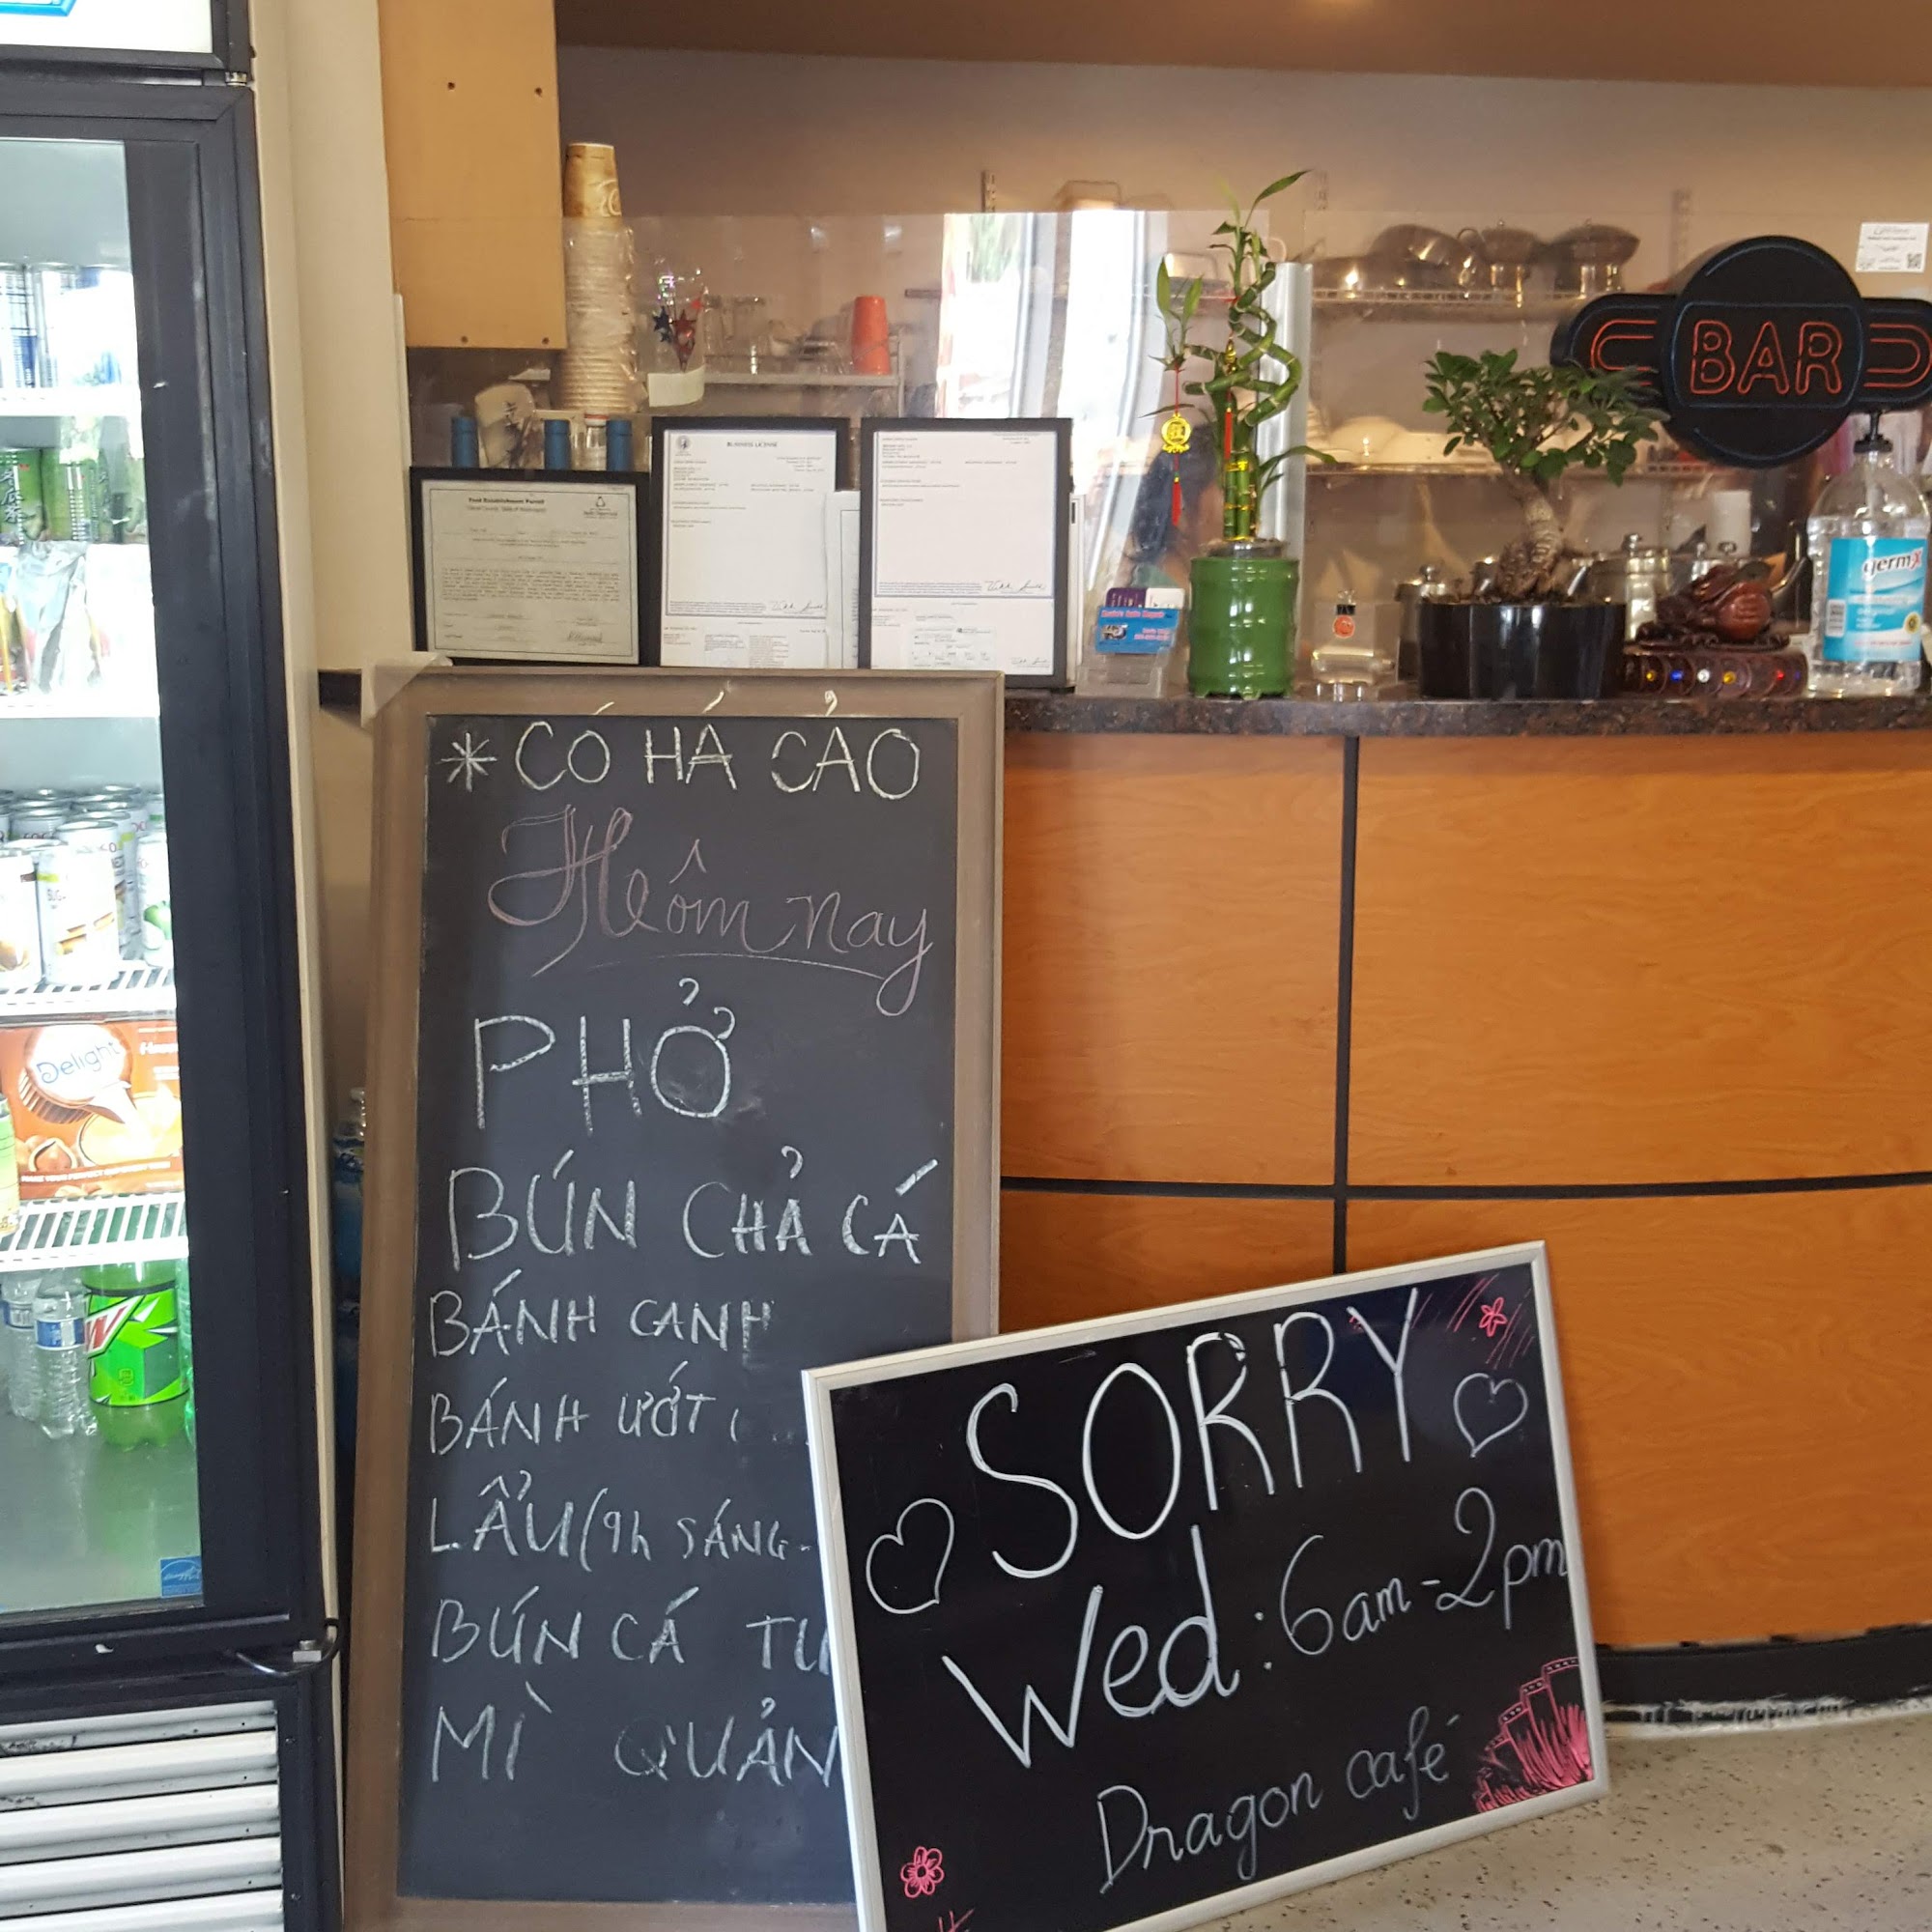 * CÓ HÁ CẢO
Hôm nay
PHỞ
BÚN CHẢ CÁ
BÁNH CANH
BÁNH ƯỚT
LẨU (9h SÁNG-
BÚN CÁ
MÌ QUẢN
SORRY
Wed: 6am-2pm
Dragon café
BAR
germ-x
BUSINESS LICENSE
Food Establishment Permit
Delight